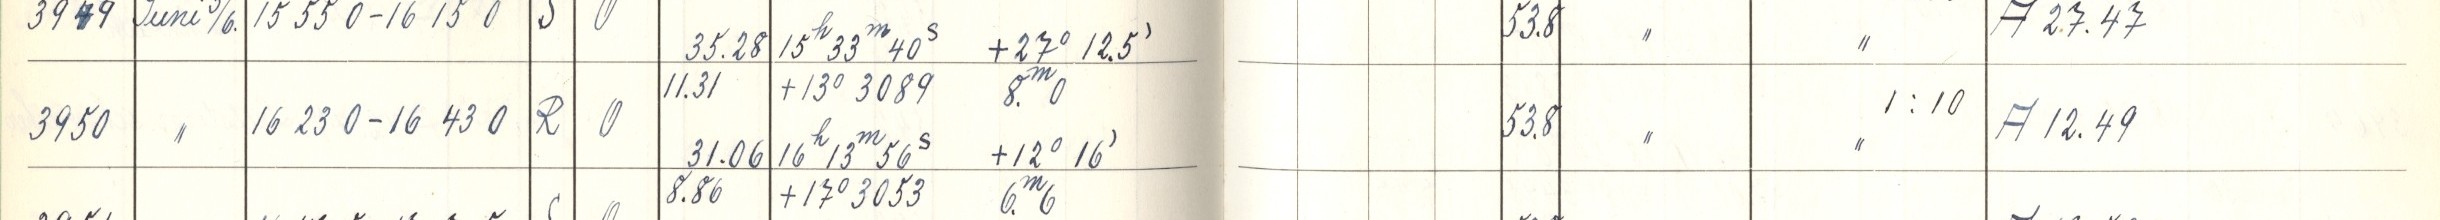 3949 Juni 5/6. 15 55 0 – 16 15 0 S 0 53.8 " " A 27.47
35.28 15ʰ 33ᵐ 40ˢ +27° 12.5'
11.31 +13° 3089 8.ᵐ0
3950 " 16 23 0 – 16 43 0 R 0 53.8 " " 1:10 A 12.49
31.06 16ʰ 13ᵐ 56ˢ +12° 16'
8.86 +17° 3053 6.ᵐ6